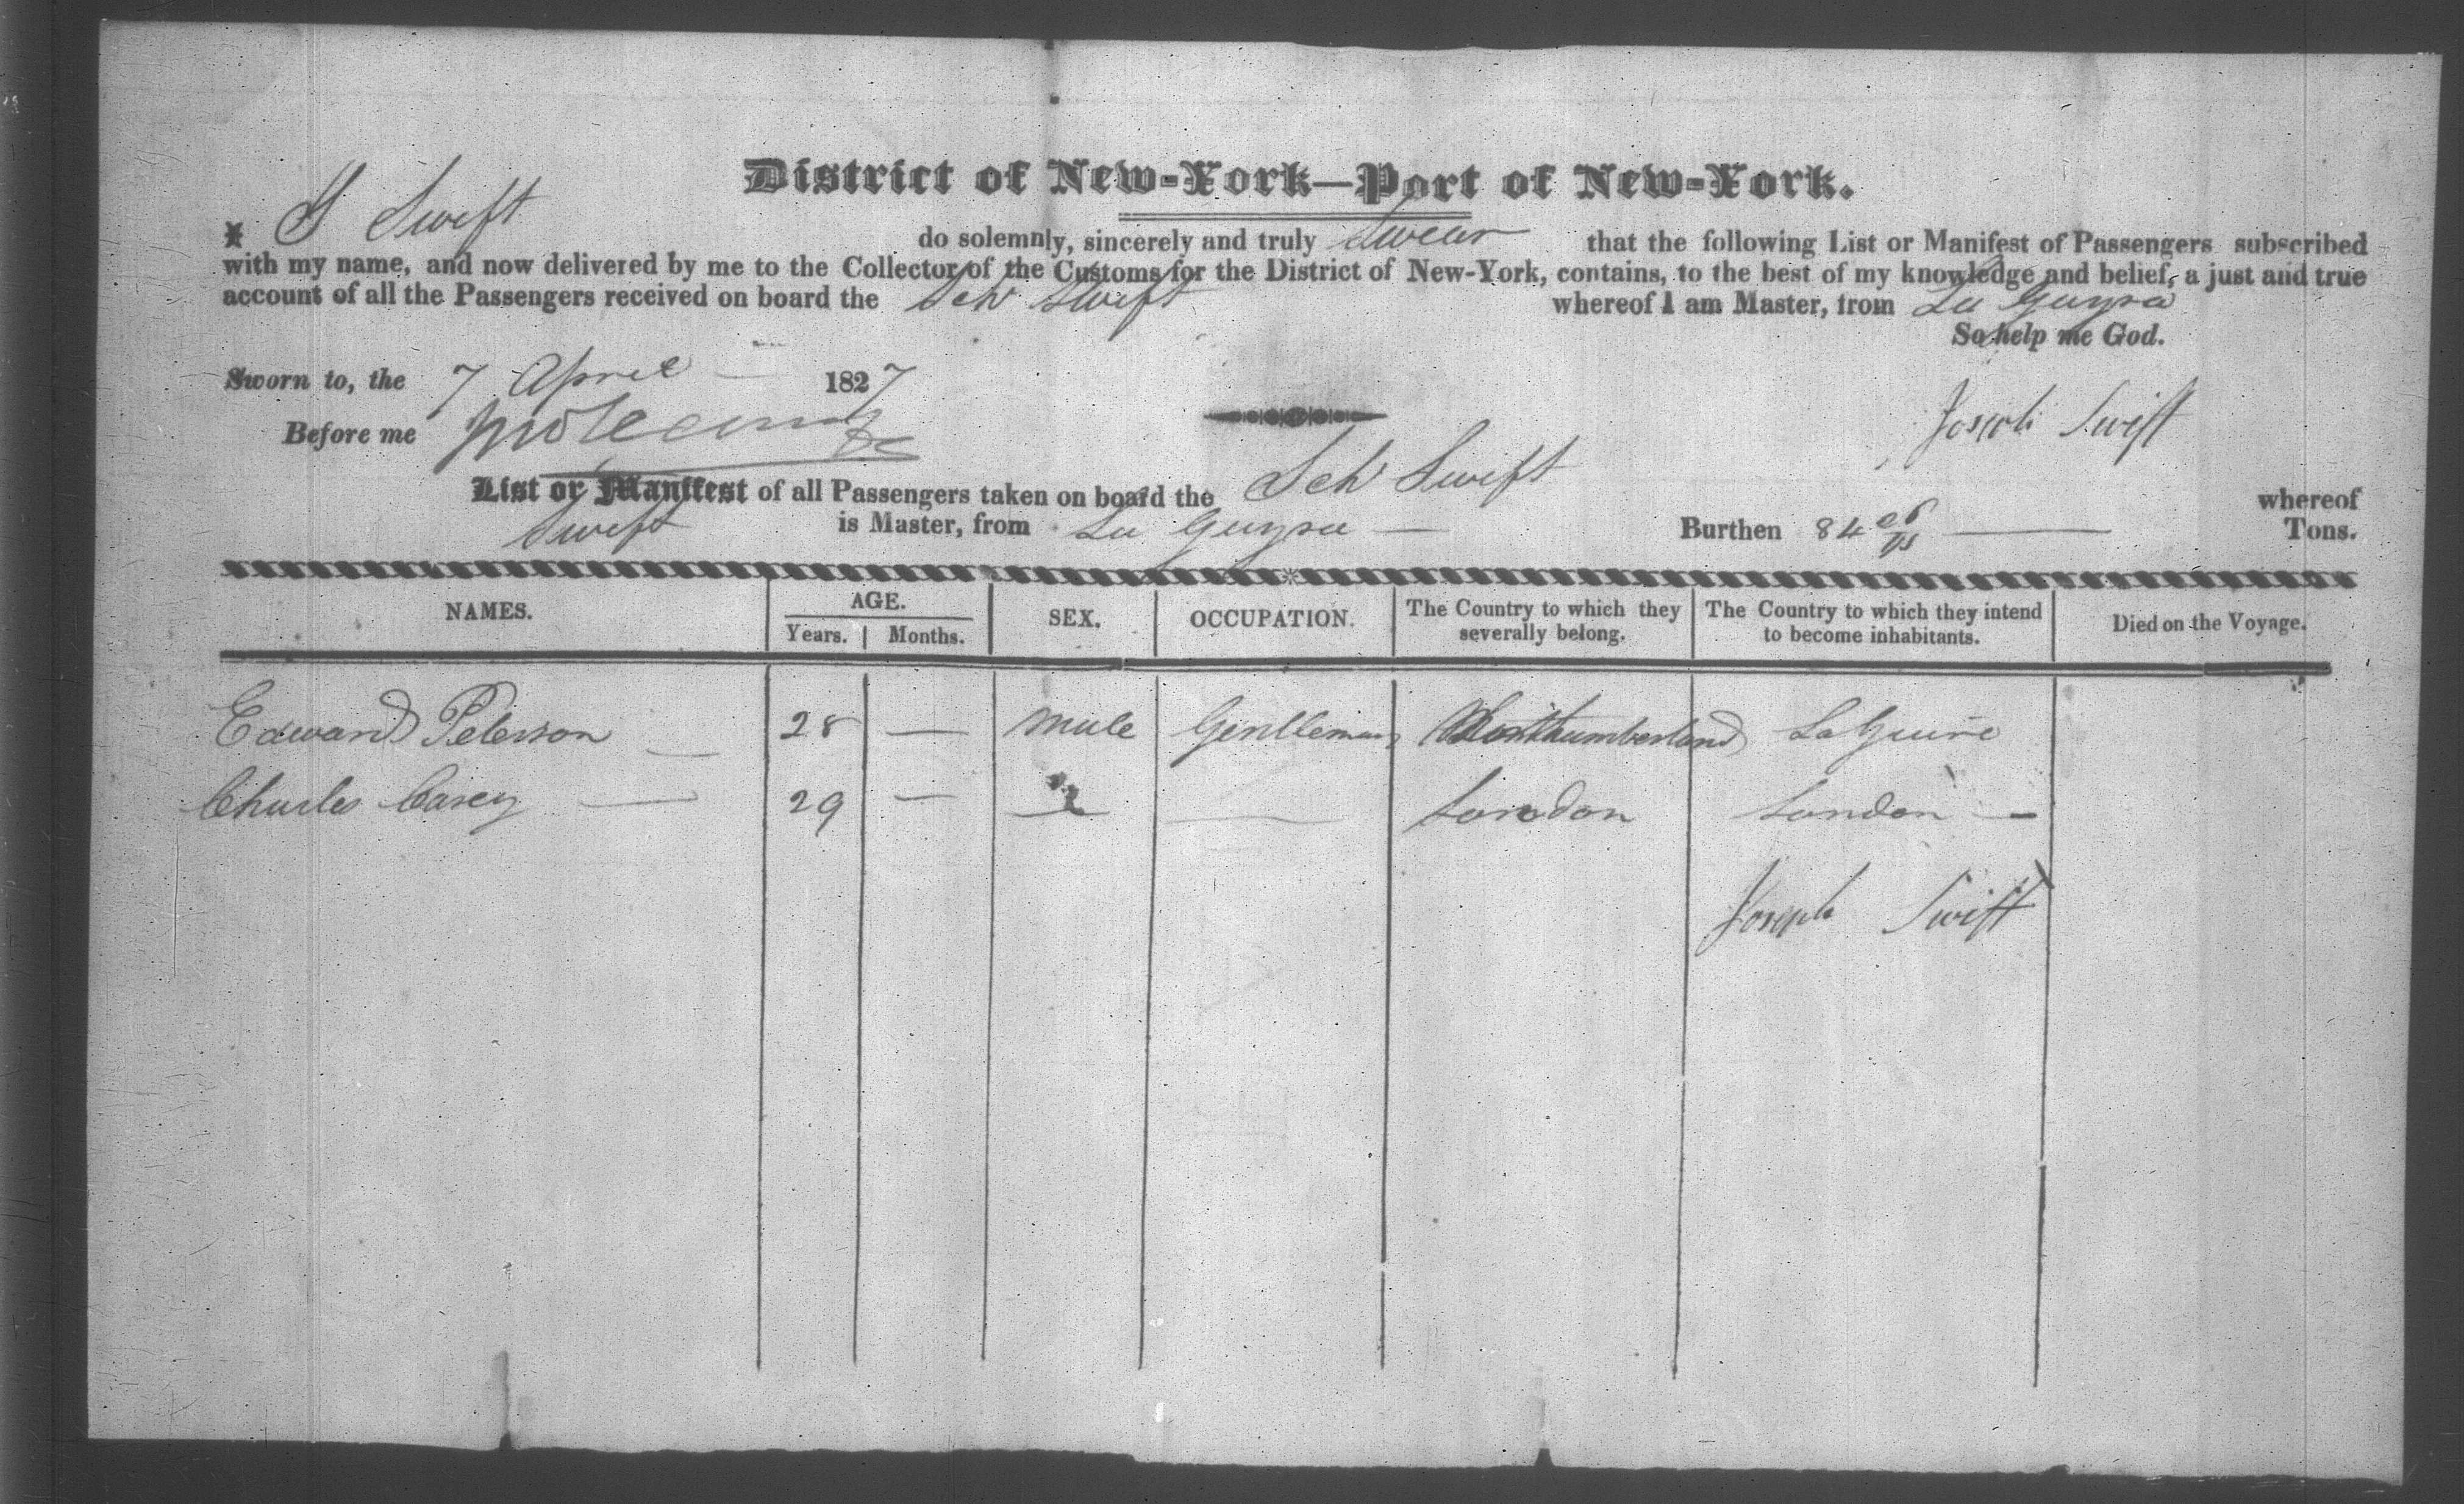 District of New-York—Port of New-York.
I J Swift do solemnly, sincerely and truly Swear that the following List or Manifest of Passengers subscribed
with my name, and now delivered by me to the Collector of the Customs for the District of New-York, contains, to the best of my knowledge and belief, a just and true
account of all the Passengers received on board the Schr Swift whereof I am Master, from La Guyra
So help me God.
Sworn to, the 7 April — 1827
Before me
Joseph Swift
List or Manifest of all Passengers taken on board the Schr Swift whereof
Swift is Master, from La Guyra — Burthen 84 Tons.
NAMES. AGE. SEX. OCCUPATION. The Country to which they severally belong. The Country to which they intend to become inhabitants. Died on the Voyage.
Years. Months.
Edward Peterson — 28 — male Gentleman Northumberland LaGuire
Charles Casey — 29 — — London London —
Joseph Swift